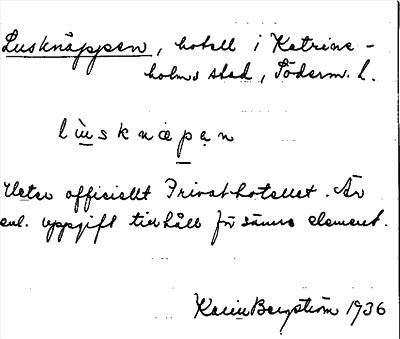 Lusknäppen, hotell i Katrine-
holms stad, Söderm. l.
lu̱sknæpa̱n
Heter officiellt Privathotellet. Är
enl. uppgift tillhåll för sämre element.
Karin Bergström 1936